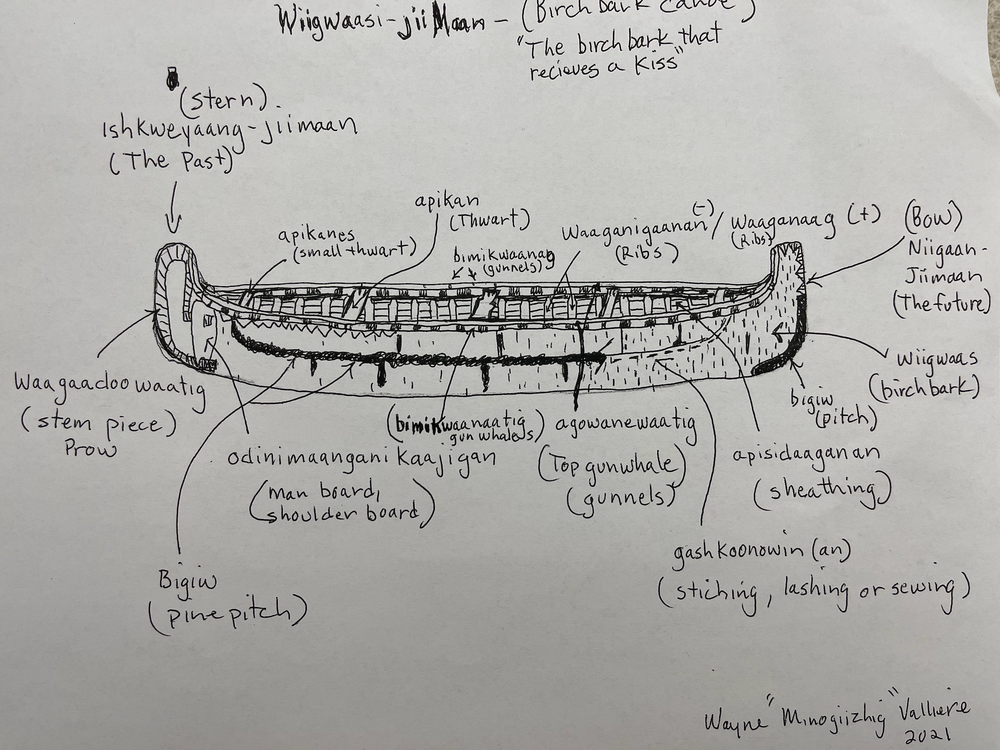 Wiigwaasi-jiiMaan - (Birch bark canoe)
"The birch bark that
recieves a Kiss"
(stern).
Ishkweyaang-jiimaan
(The Past)
apikan
(Thwart)
apikanes
(small thwart)
bimikwaanag
(gunnels)
(-)
Waaganigaanan / Waaganaag (+)
(Ribs)
(Ribs)
(Bow)
Niigaan-
Jiimaan
(The future)
Waagaadoowaatig
(stem piece)
Prow
wiigwaas
(birch bark)
bigiw
(pitch)
(bimikwaanaatig
gun whales)
agowanewaatig
(Top gunwhale)
(gunnels)
odinimaanganikaajigan
(man board,
shoulder board)
apisidaaganan
(sheathing)
gashkoonowin (an)
(stiching, lashing or sewing)
Bigiw
(pine pitch)
Wayne "Minogiizhig" Valliere
2021